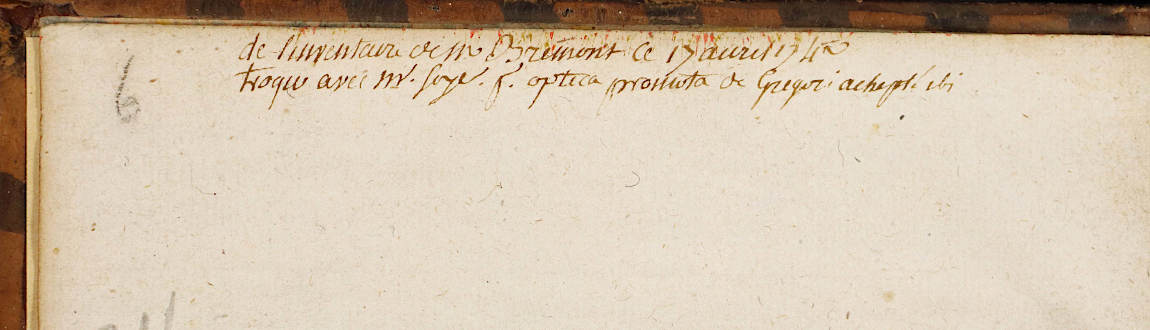 de l'inventaire de Mr Bremont ce 17 avril 174
troqué avec Mr. soye. p. optica promota de Gregori achepté ibi
6